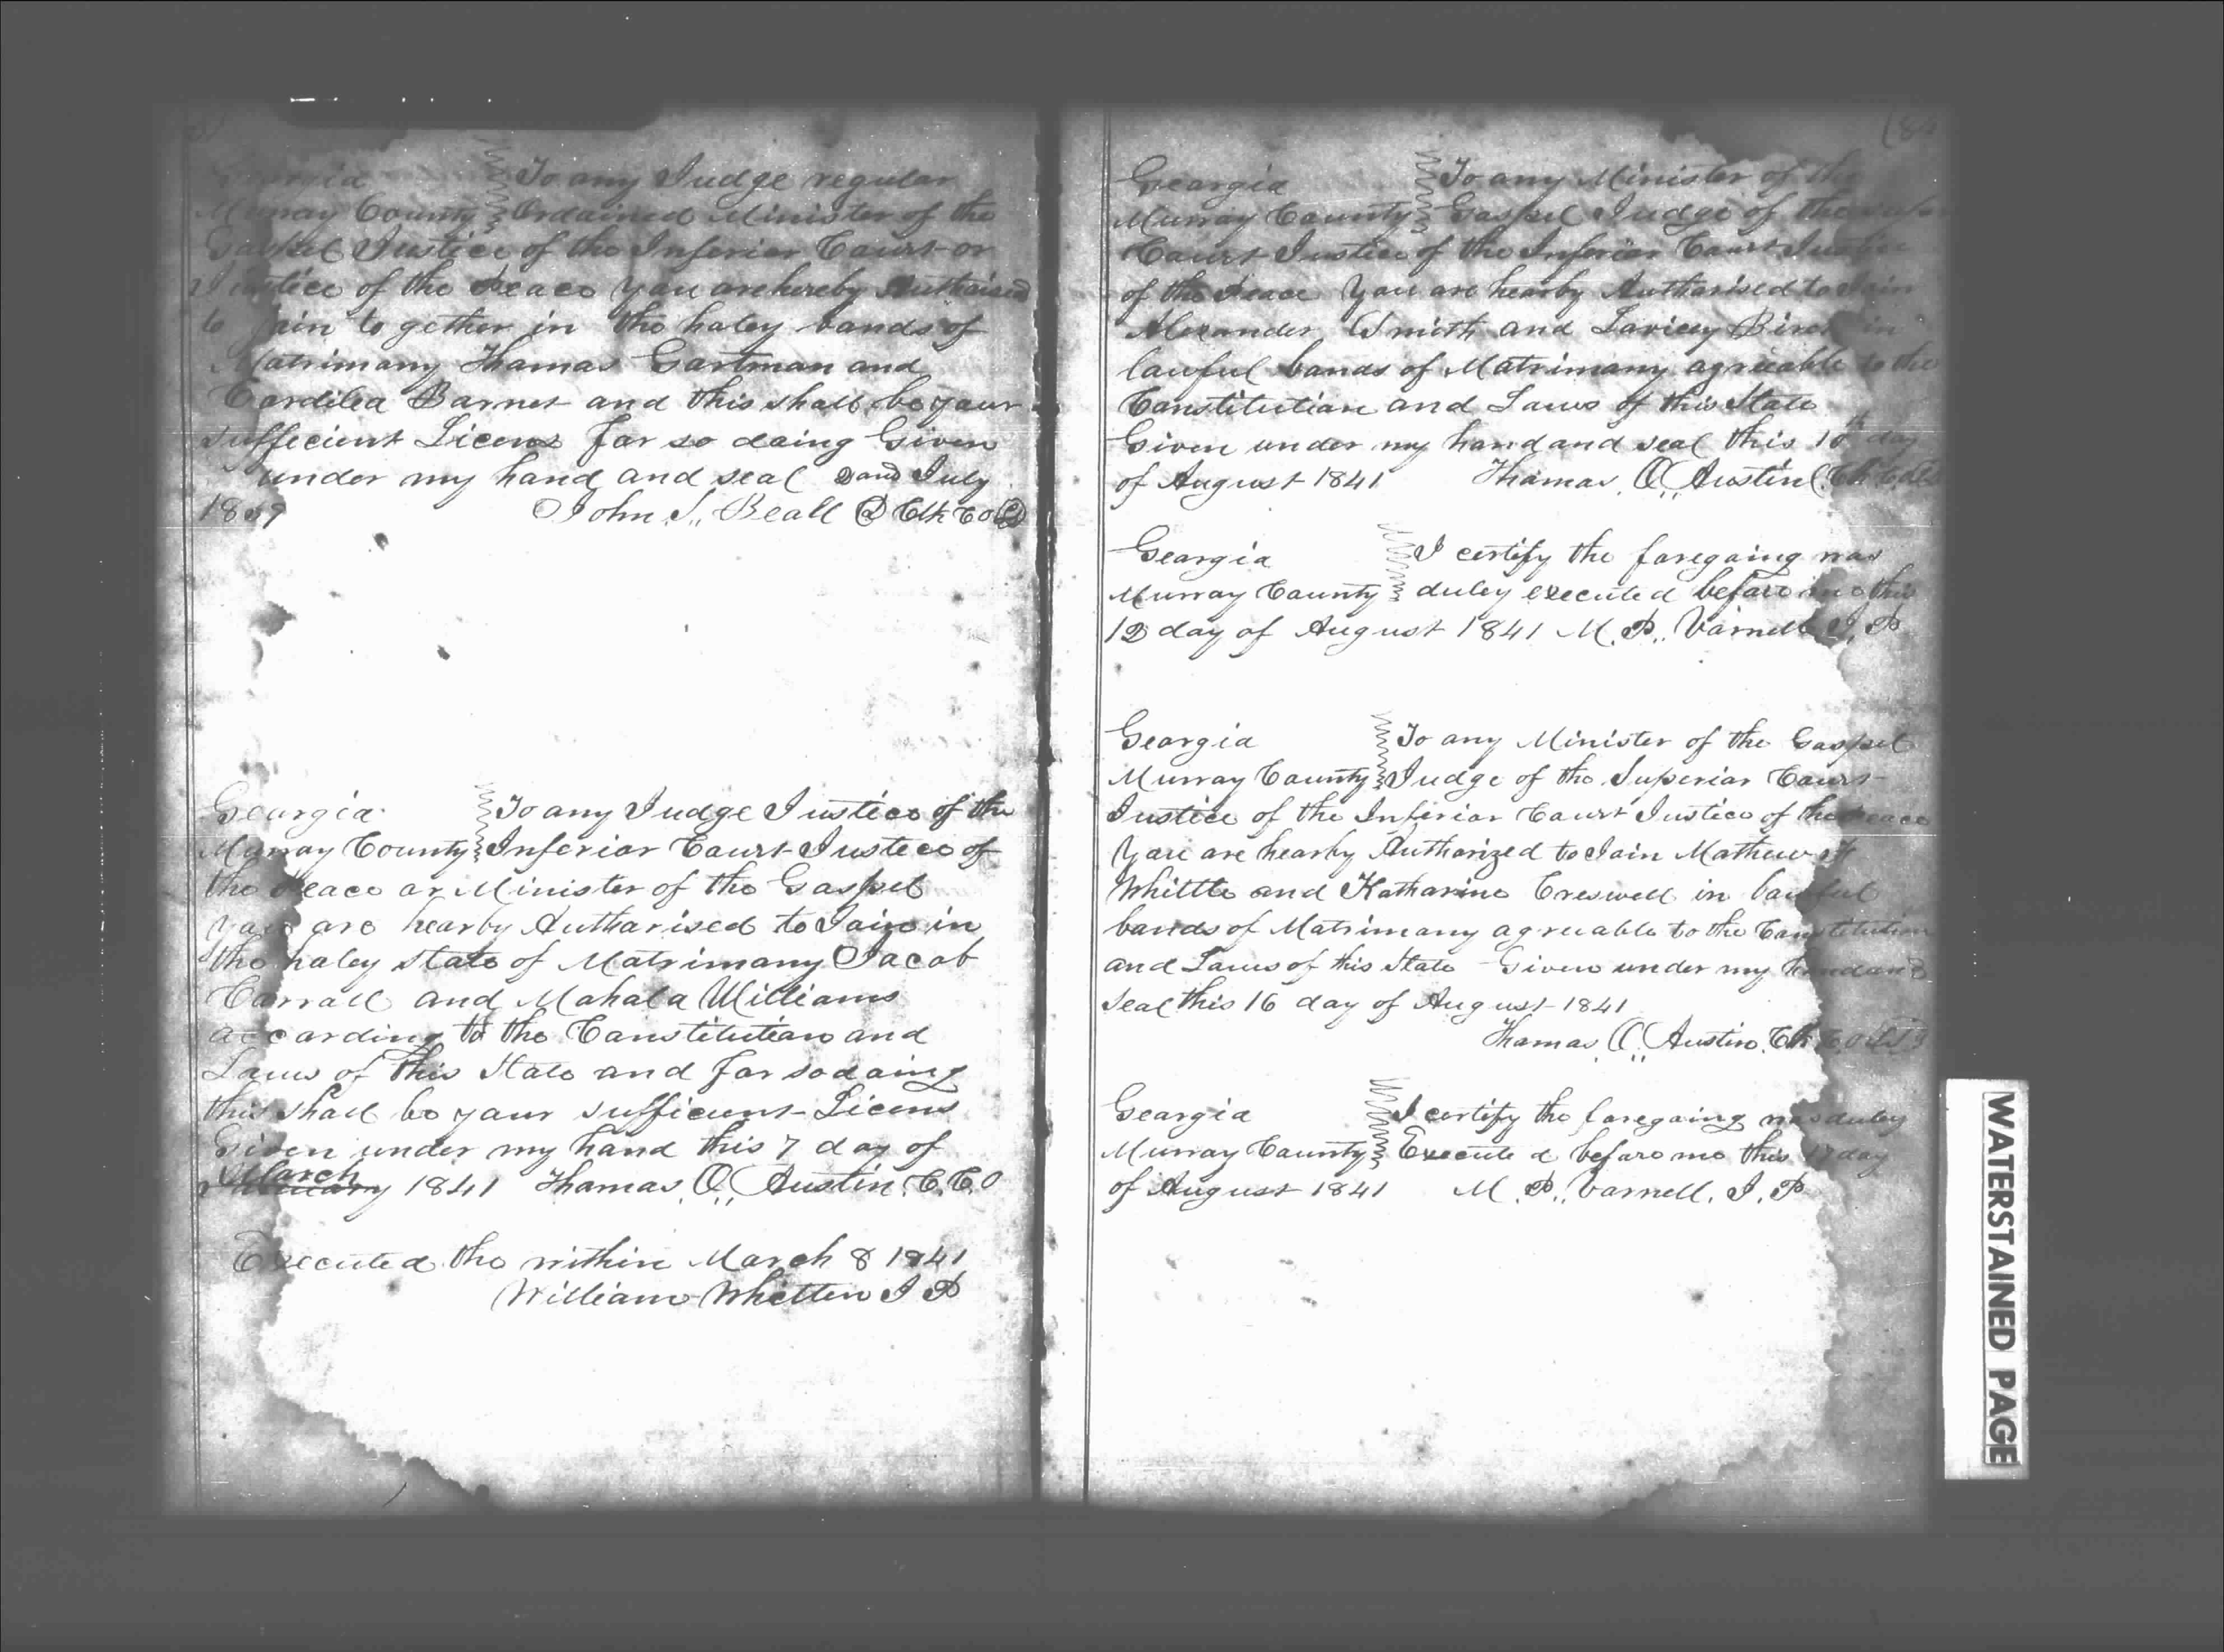 Georgia To any Judge regular
Murray County Ordained Minister of the
Gospel Justice of the Inferior Court or
Justice of the Peace You are hereby Authorised
to join to gether in the holey bands of
Matrimony Thomas Gartman and
Cordilea Barnet and this shall be your
suffecient Licens for so doing Given
under my hand and seal 2and July
1839 John S,, Beall D Clk CO
Georgia To any Judge Justice of the
Murray County Inferior Court Justece of
the Peace or Minister of the Gospel
You are hearby Authorised to Join in
the holey state of Matrimony Jacob
Carrall and Mahala Williams
according to the Constitution and
Laws of this State and for so doing
this shall be your sufficient Licens
Given under my hand this 7 day of
March 1841 Thomas O,, Austin C.C.O
Executed the within March 8 1841
William Whitten J P
(84
Georgia To any Minister of the
Murray County Gospel Judge of the
Court Justice of the Inferior Court Justice
of the Peace You are hearby Autharised to Join
Alexander Smith and Lavicey in
lawful bands of Matrimony agreeable to the
Constitution and Laws of this State
Given under my hand and seal this 10th day
of August 1841 Thomas O,, Austin
Georgia I certify the foregoing was
Murray County duley executed before me this
12 day of August 1841 M. P,, Varnell J. P
Georgia To any Minister of the Gospel
Murray County Judge of the Superior Court
Justice of the Inferior Court Justice of the Peace
You are hearby Authorized to Join Mathew
Whittle and Katharine Creswell in lawful
bands of Matrimony agreeable to the Constitution
and Laws of this State Given under my hand and
seal this 16 day of August 1841
Thomas O,, Austin
Georgia I certify the foregoing was duley
Murray County Executed before me this 17 day
of August 1841 M. P,, Varnell. J. P
WATERSTAINED PAGE